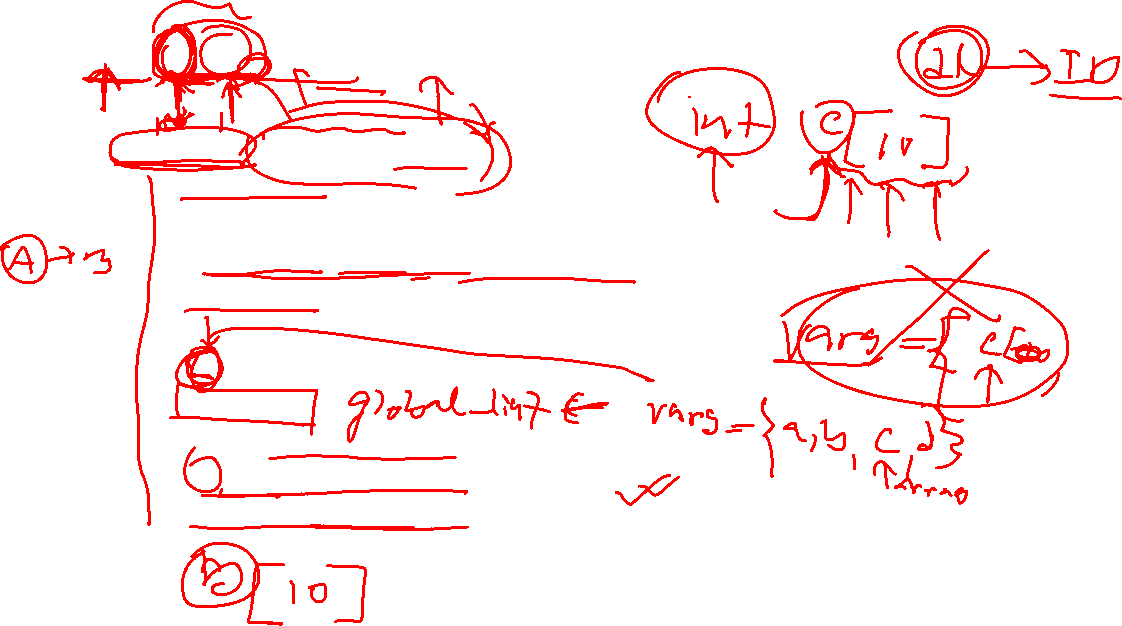 2D → 1D
int C[10]
A → 3
vars = { c[
global_list ← vars = {a, b, c, d}
Array
b[10]